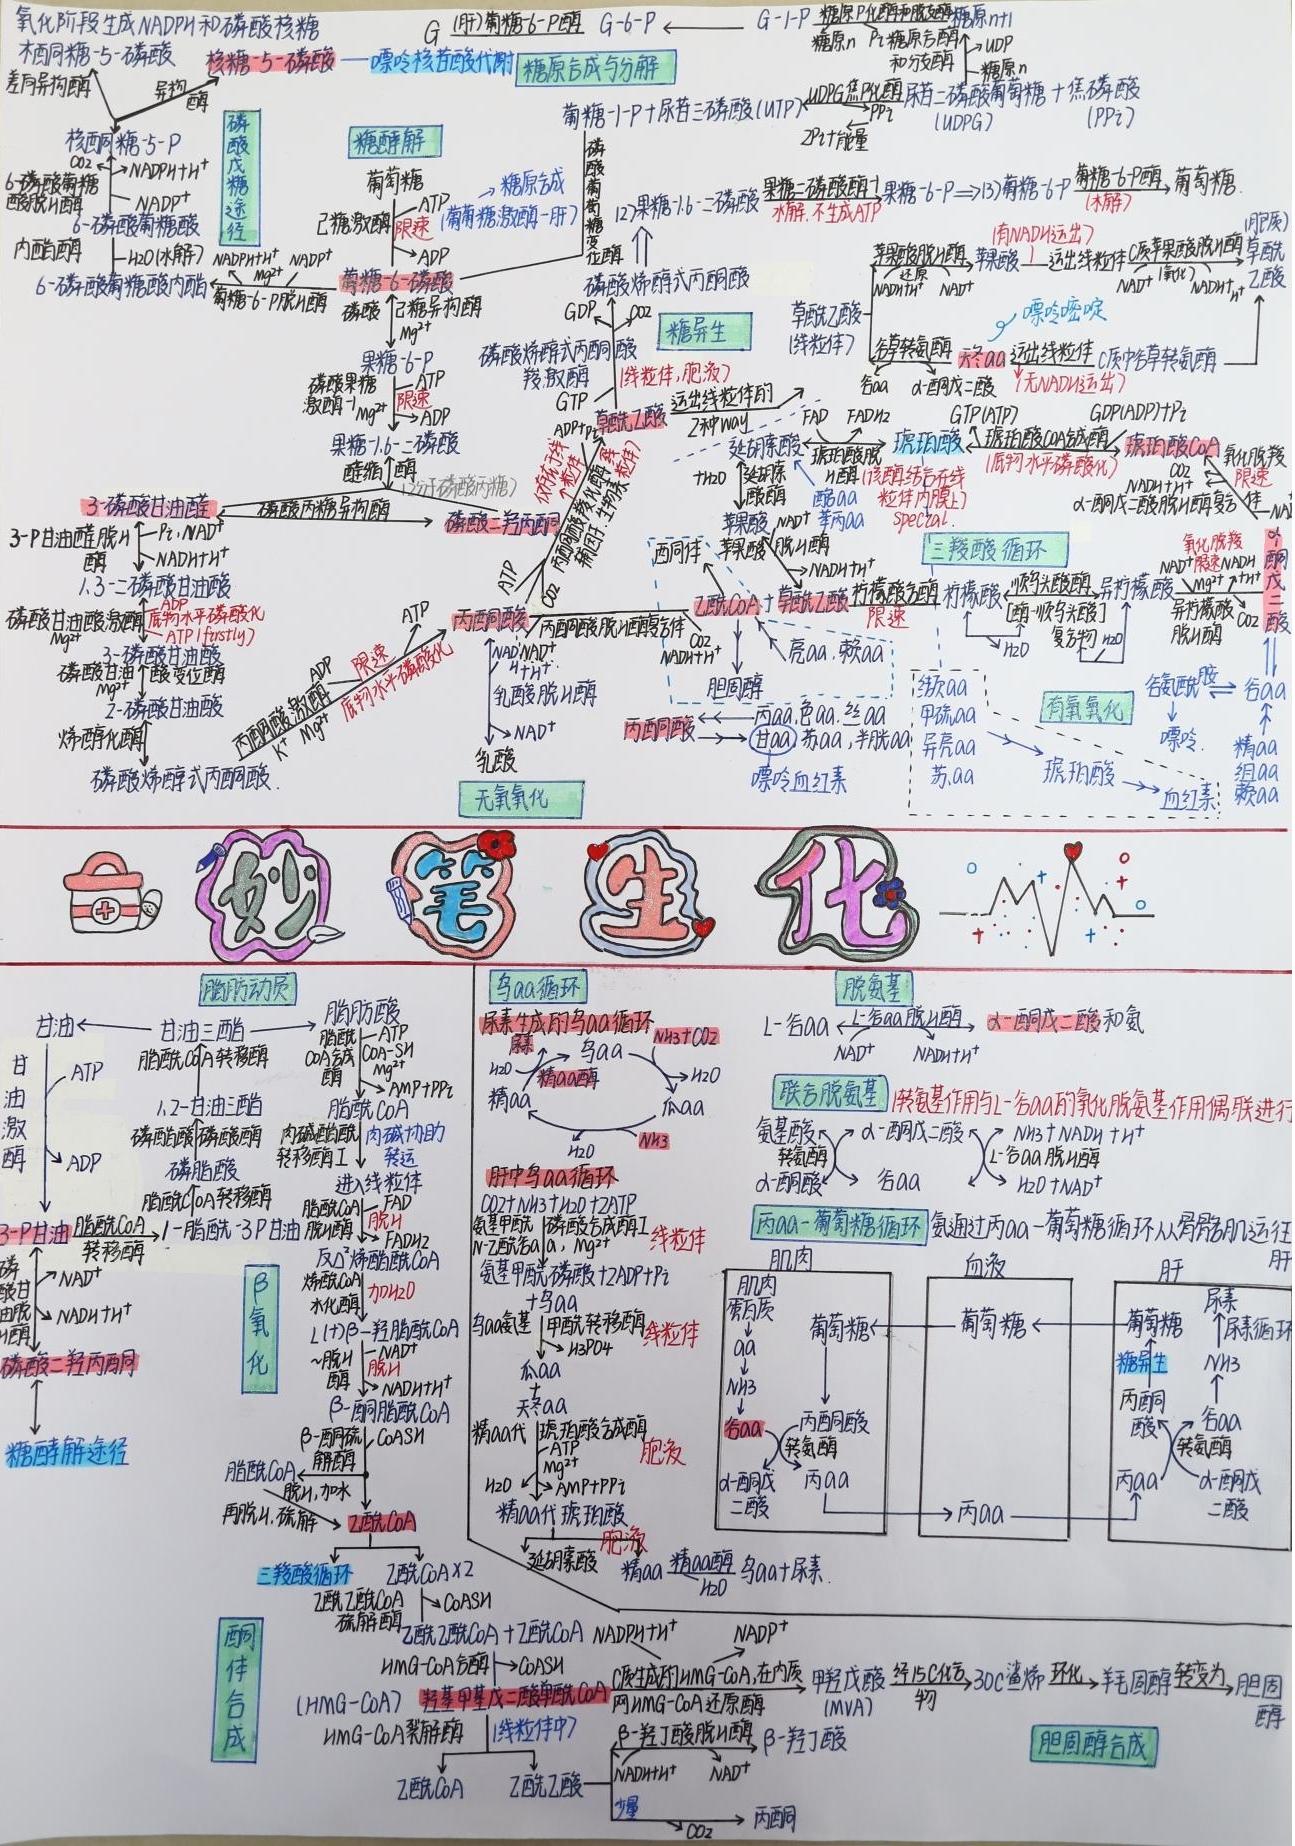 氧化阶段生成NADPH和磷酸核糖
木酮糖-5-磷酸
核糖-5-磷酸
嘌呤核苷酸代谢
差向异构酶
异构酶
核酮糖-5-P
CO2
NADPH+H+
6-磷酸葡糖酸脱H酶
NADP+
6-磷酸葡糖酸
内酯酶
H2O(水解)
6-磷酸葡糖酸内酯
NADPH+H+
NADP+
Mg2+
葡糖-6-P脱H酶
磷酸戊糖途径
G
(肝)葡糖-6-P酶
G-6-P
G-1-P
糖原n+1
糖原n
Pi
UDP
糖原n
糖原合酶和分支酶
糖原合成与分解
葡糖-1-P+尿苷三磷酸(UTP)
UDPG焦P化酶
PPi
2Pi+能量
尿苷二磷酸葡萄糖+焦磷酸
(UDPG)
(PPi)
磷酸葡萄糖变位酶
糖酵解
葡萄糖
己糖激酶
ATP
限速
ADP
糖原合成
(葡萄糖激酶-肝)
葡糖-6-磷酸
磷酸己糖异构酶
Mg2+
果糖-6-P
磷酸果糖激酶-1
Mg2+
ATP
限速
ADP
果糖-1.6-二磷酸
醛缩酶
(2分子磷酸丙糖)
3-磷酸甘油醛
磷酸丙糖异构酶
磷酸二羟丙酮
3-P甘油醛脱H酶
Pi,NAD+
NADH+H+
1.3-二磷酸甘油酸
磷酸甘油酸激酶
Mg2+
ADP
底物水平磷酸化
ATP(firstly)
3-磷酸甘油酸
磷酸甘油酸变位酶
Mg2+
2-磷酸甘油酸
烯醇化酶
磷酸烯醇式丙酮酸
丙酮酸激酶
K+ Mg2+
ADP
限速
ATP
底物水平磷酸化
丙酮酸
NADH+H+
NAD+
乳酸脱H酶
NAD+
乳酸
无氧氧化
(2)果糖-1.6-二磷酸
果糖二磷酸酶-1
水解.不生成ATP
果糖-6-P⇒(3)葡糖-6-P
葡糖-6-P酶
(水解)
葡萄糖.
磷酸烯醇式丙酮酸
GDP
CO2
磷酸烯醇式丙酮酸羧激酶
GTP
(线粒体,胞液)
糖异生
草酰乙酸
运出线粒体的
2种way
ADP+Pi
(仅存于线粒体)
丙酮酸羧化酶
辅因子:生物素
ATP
CO2
草酰乙酸
(线粒体)
苹果酸脱H酶
还原
NADH+H+
NAD+
苹果酸
(有NADH运出)
运出线粒体
C质苹果酸脱H酶
(氧化)
NAD+
NADH+H+
草酰乙酸
(胞质)
谷草转氨酶
谷aa
α-酮戊二酸
天冬aa
嘌呤嘧啶
运出线粒体
(无NADH运出)
C质中谷草转氨酶
延胡索酸
FAD
FADH2
琥珀酸脱H酶
(该酶结合在线粒体内膜上)
special.
琥珀酸
GTP(ATP)
GDP(ADP)+Pi
琥珀酰COA合成酶
(底物水平磷酸化)
琥珀酰CoA
氧化脱羧
限速
CO2
NADH+H+
α-酮戊二酸脱H酶复合体
α-酮戊二酸
酪aa
苯丙aa
+H2O
延胡索酸酶
苹果酸
苹果酸脱H酶
NAD+
NADH+H+
三羧酸循环
酮体
丙酮酸脱H酶复合体
CO2
NADH+H+
乙酰CoA+草酰乙酸
柠檬酸合酶
限速
柠檬酸
顺乌头酸酶
[酶-顺乌头酸]复合物
H2O
H2O
异柠檬酸
氧化脱羧
限速
NAD+
NADH
Mg2+ +H+
异柠檬酸脱H酶
CO2
胆固醇
亮aa.赖aa
丙酮酸
丙aa.色aa.丝aa
甘aa.苏aa,半胱aa
嘌呤血红素
缬aa
甲硫aa
异亮aa
苏.aa
琥珀酸
血红素
有氧氧化
谷氨酰胺
谷aa
嘌呤.
精aa
组aa
赖aa
妙笔生化
脂肪动员
甘油
甘油三酯
脂肪酸
甘油激酶
ATP
ADP
脂酰CoA转移酶
1,2-甘油二酯
磷酯酸磷酸酶
磷脂酸
脂酰CoA转移酶
3-P甘油
脂酰CoA转移酶
1-脂酰-3P甘油
磷酸甘油脱H酶
NAD+
NADH+H+
磷酸二羟丙酮
糖酵解途径
脂酰COA合成酶
ATP
COA-SH
Mg2+
AMP+PPi
脂酰COA
肉碱酯酰转移酶I
肉碱协助转运
进入线粒体
脂酰CoA脱H酶
FAD
脱H
FADH2
反Δ2烯酯酰COA
烯酰COA水化酶
加H2O
L(+)β-羟脂酰COA
~脱H酶
NAD+
脱H
NADH+H+
β-酮脂酰COA
β-酮硫解酶
COASH
脂酰COA
脱H,加水
再脱H.硫解
乙酰COA
β氧化
三羧酸循环
乙酰COAX2
乙酰乙酰COA硫解酶
COASH
乙酰乙酰COA+乙酰COA
HMG-COA合酶
COASH
(HMG-COA)
羟基甲基戊二酸单酰COA
HMG-COA裂解酶
(线粒体中)
乙酰COA
乙酰乙酸
β-羟丁酸脱H酶
NADH+H+
NAD+
β-羟丁酸
少量
CO2
丙酮
酮体合成
NADPH+H+
NADP+
C质生成的HMG-COA,在内质网HMG-COA还原酶
甲羟戊酸
(MVA)
经15C化合物
30C鲨烯
环化
羊毛固醇
转变为
胆固醇
胆固醇合成
鸟aa循环
尿素生成的鸟aa循环
尿素
鸟aa
NH3+CO2
H2O
精aa酶
H2O
精aa
瓜aa
H2O
NH3
肝中鸟aa循环
CO2+NH3+H2O+2ATP
氨基甲酰磷酸合成酶I
N-乙酰谷aa,Mg2+
线粒体
氨基甲酰磷酸+2ADP+Pi
+鸟aa
鸟aa氨基甲酰转移酶
线粒体
H3PO4
瓜aa
+
天冬aa
精aa代琥珀酸合成酶
ATP
Mg2+
胞液
H2O
AMP+PPi
精aa代琥珀酸
胞液
延胡索酸
精aa
精aa酶
H2O
鸟aa+尿素.
脱氨基
L-谷aa
L-谷aa脱H酶
NAD+
NADH+H+
α-酮戊二酸和氨
联合脱氨基
(转氨基作用与L-谷aa的氧化脱氨基作用偶联进行
氨基酸
转氨酶
α-酮酸
α-酮戊二酸
谷aa
NH3+NADH+H+
L-谷aa脱H酶
H2O+NAD+
丙aa-葡萄糖循环
氨通过丙aa-葡萄糖循环从骨骼肌运往肝
肌肉
血液
肝
肌肉蛋白质
aa
NH3
谷aa
α-酮戊二酸
葡萄糖
丙酮酸
转氨酶
丙aa
葡萄糖
丙aa
葡萄糖
糖异生
丙酮酸
丙aa
尿素
尿素循环
NH3
谷aa
转氨酶
α-酮戊二酸